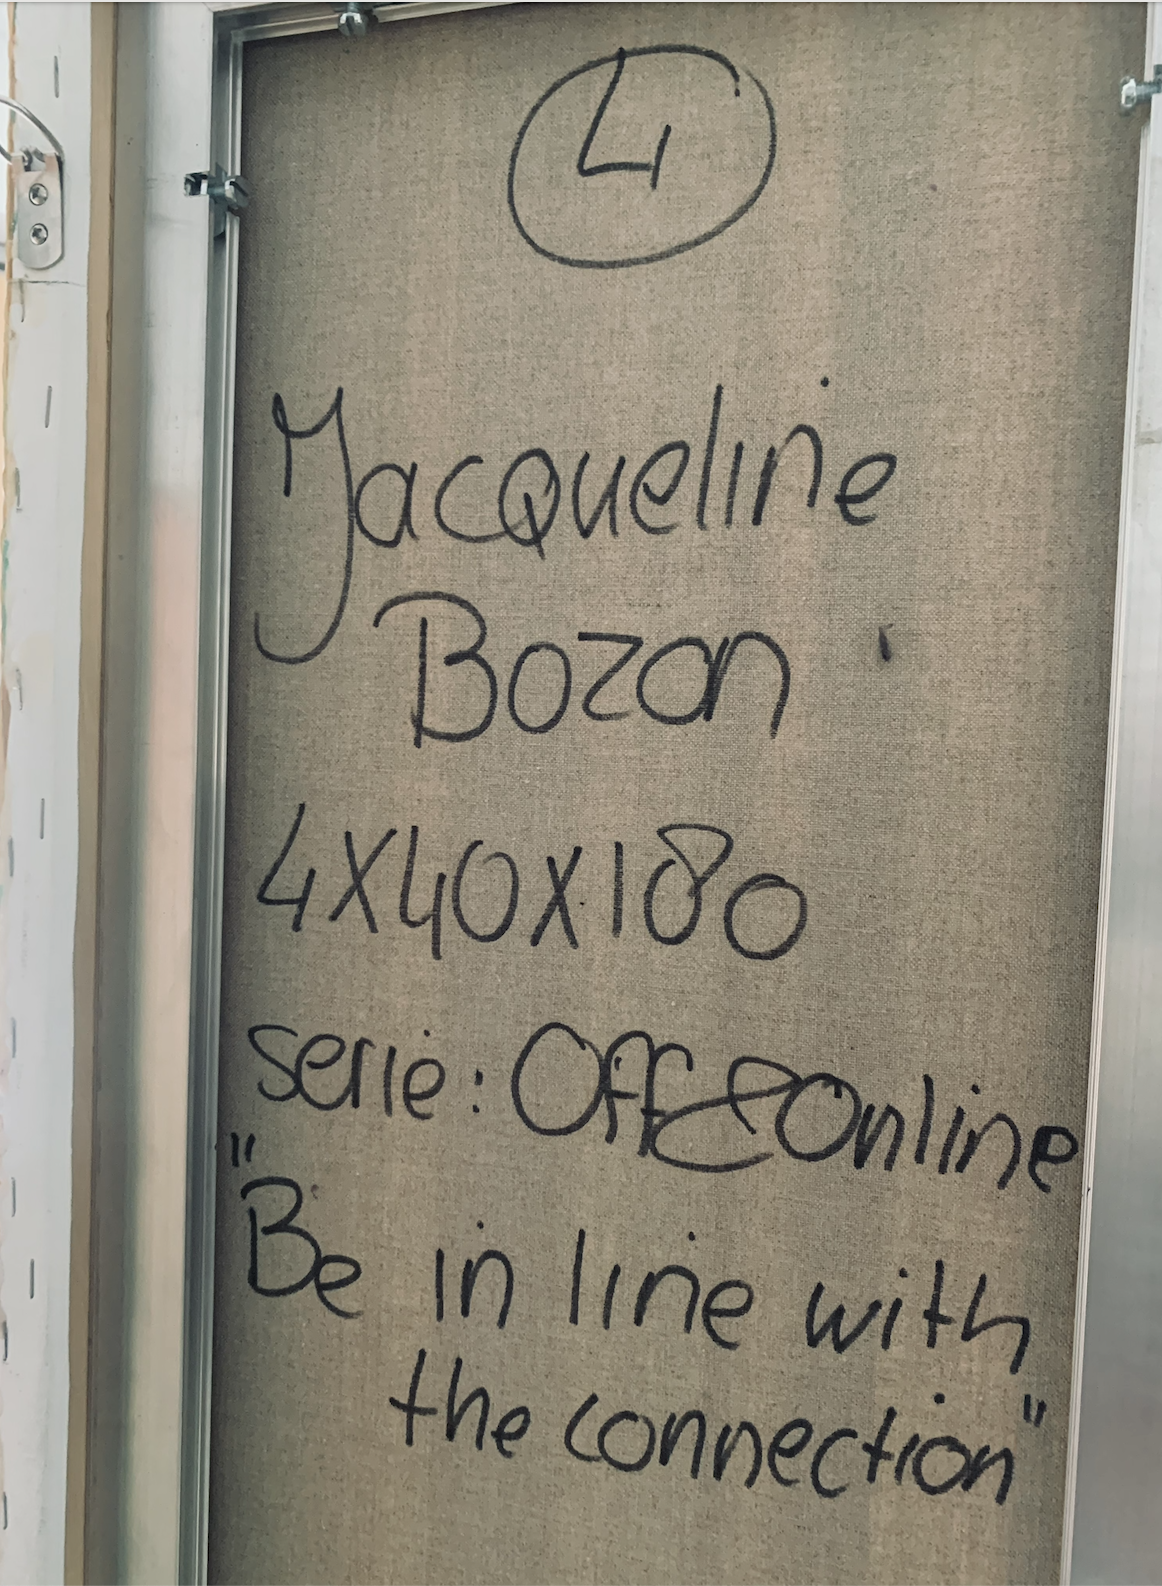 4
Jacqueline
Bozan
4x40x180
serie: Off&Online
"Be in line with
the connection"